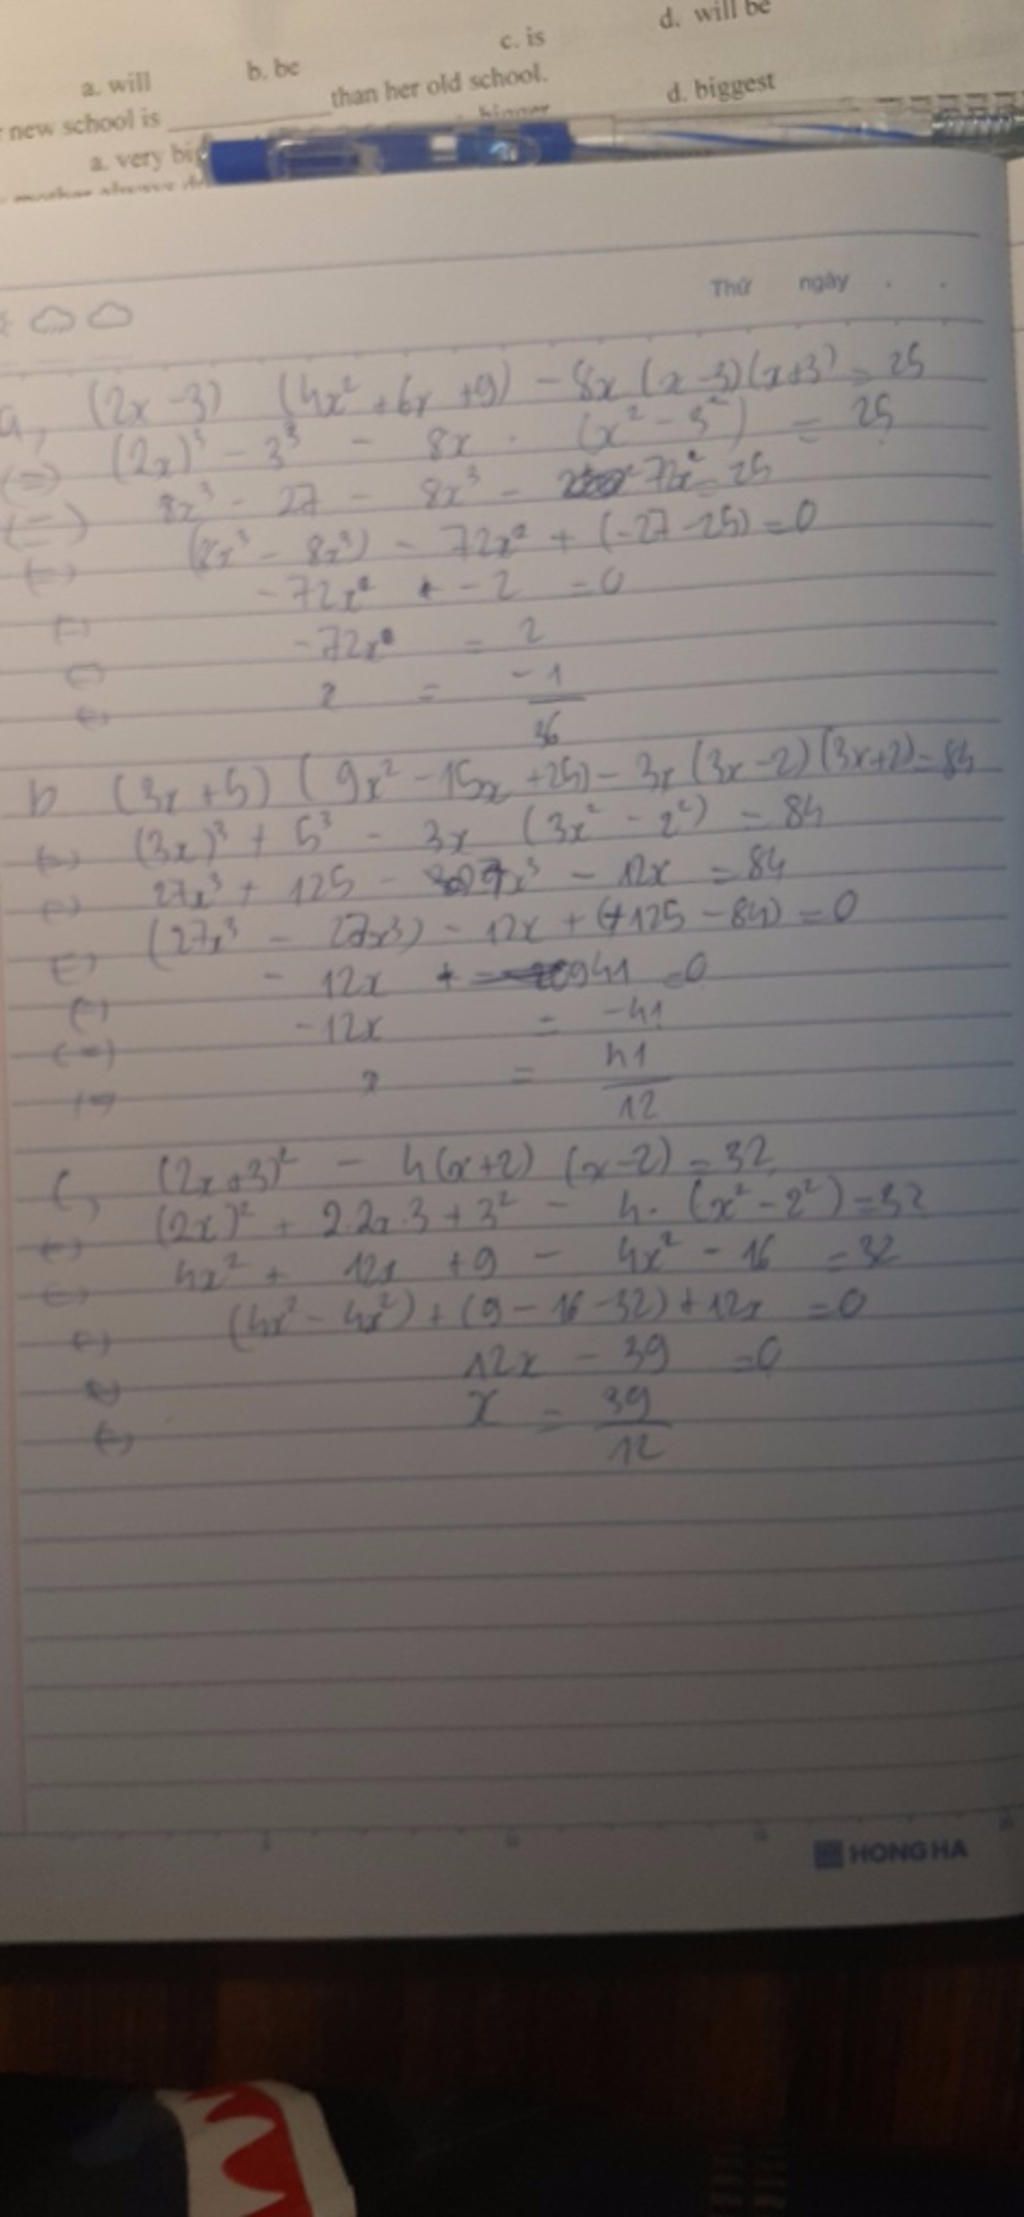 d. will be
c. is
a. will b. be
than her old school.
new school is ________ d. biggest
bigger
a. very bi
mother always d
Thứ ngày . .
a, (2x-3) (4x² + 6x + 9) - 8x (x-3)(x+3) = 25
(=) (2x)³ - 3³ - 8x . (x² - 3²) = 25
(=) 8x³ - 27 - 8x³ - 72x² = 25
(=) (8x³ - 8x³) - 72x² + (-27-25) = 0
(=) -72x² + -2 = 0
(=) -72x = 2
(=) x = -1/36
b (3x+5) (9x² - 15x + 25) - 3x (3x-2)(3x+2) = 84
(=) (3x)³ + 5³ - 3x (3x² - 2²) = 84
(=) 27x³ + 125 - 27x³ - 12x = 84
(=) (27x³ - 27x³) - 12x + (+125 - 84) = 0
(=) - 12x + 41 = 0
(=) -12x = -41
(=) x = 41/12
c, (2x+3)² - 4(x+2) (x-2) = 32
(=) (2x)² + 2.2x.3 + 3² - 4. (x² - 2²) = 32
(=) 4x² + 12x + 9 - 4x² - 16 = 32
(=) (4x² - 4x²) + (9 - 16 - 32) + 12x = 0
(=) 12x - 39 = 0
(=) x = 39/12
HONG HA